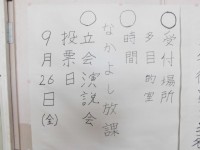 ○受付場所
多目的室
○時間
なかよし放課
○立会演説会
投票日
9月26日(金)